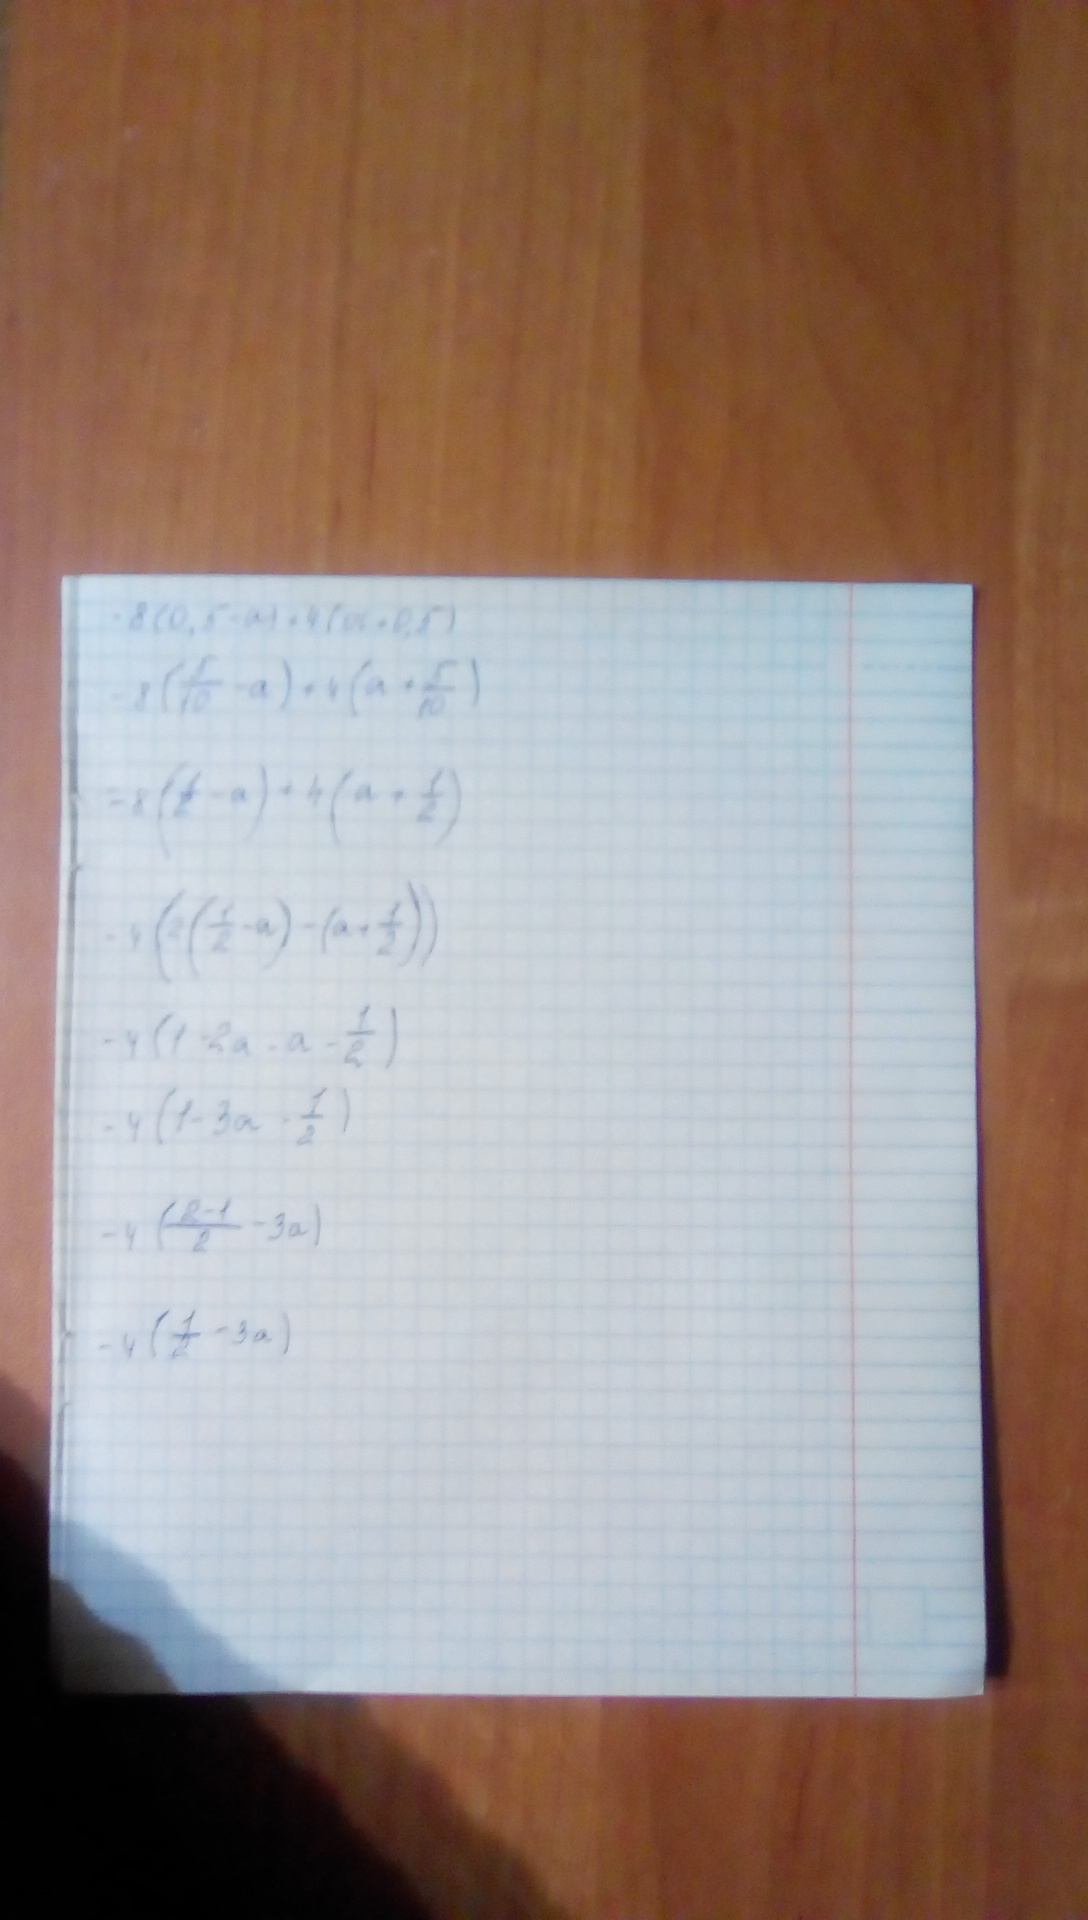 -8(0,5-a)+4(a+0,5)
-8(5/10-a)+4(a+5/10)
-8(1/2-a)+4(a+1/2)
-4(2(1/2-a)-(a+1/2))
-4(1-2a-a-1/2)
-4(1-3a-1/2)
-4((2-1)/2-3a)
-4(1/2-3a)